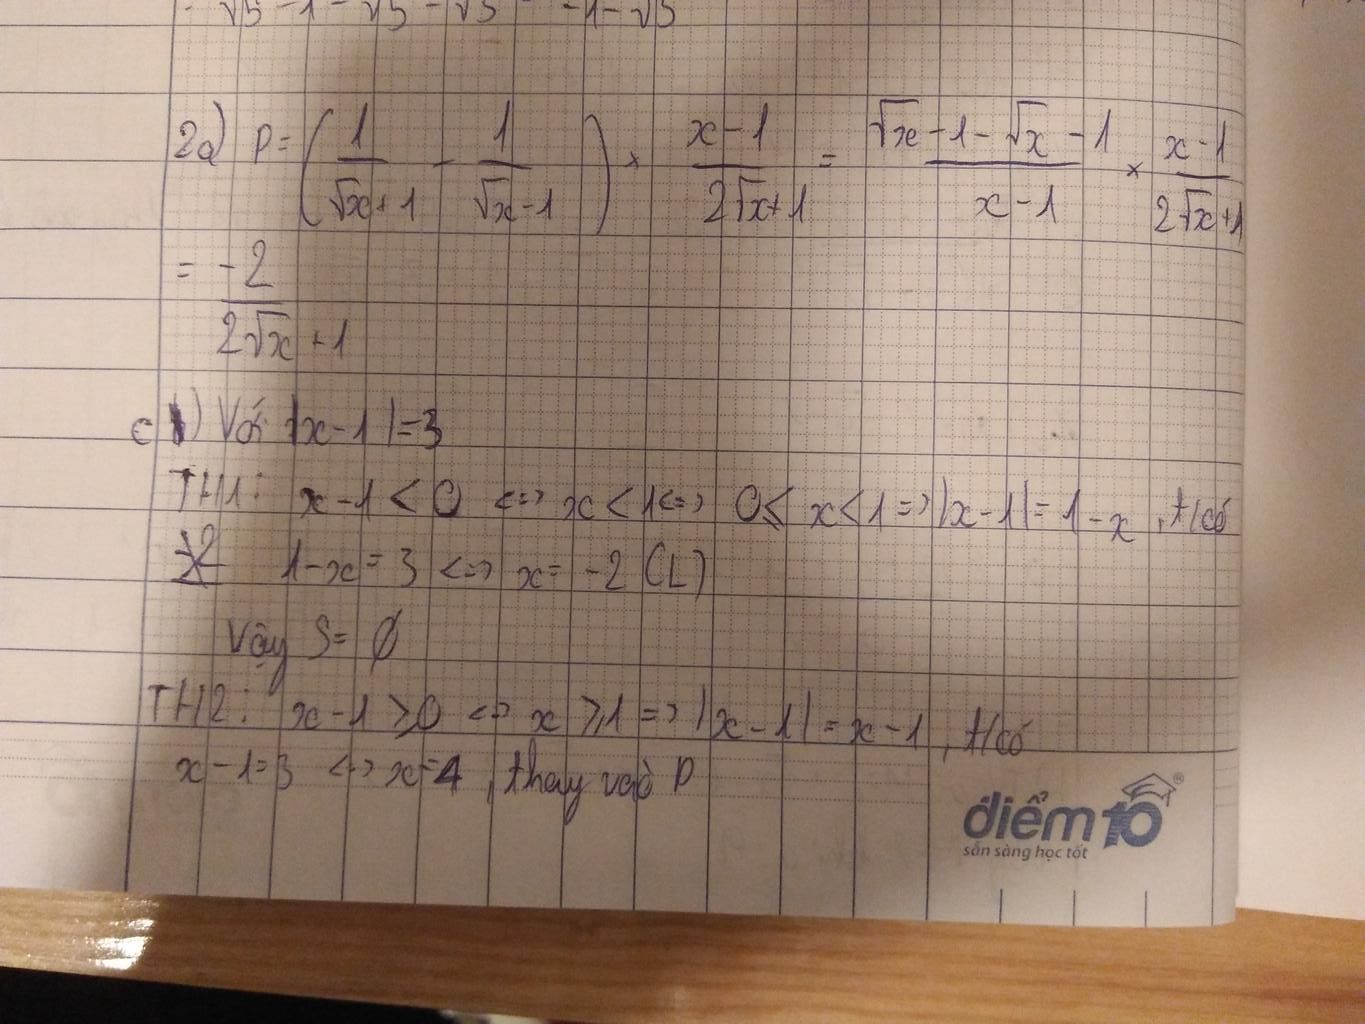 = √5 - 1 - √5 - √5 = -1 - √5
2a) P = (1/(√x+1) - 1/(√x-1)) × (x-1)/(2√x+1) = (√x-1-√x-1)/(x-1) × (x-1)/(2√x+1)
= -2/(2√x+1)
c) Với |x-1|=3
TH1: x-1<0 <=> x<1 <=> 0≤x<1 => |x-1|=1-x, t/có
1-x=3 <=> x=-2 (L)
Vậy S=∅
TH2: x-1≥0 <=> x≥1 => |x-1|=x-1, t/có
x-1=3 <=> x=4, thay vào P
điểm10®
sẵn sàng học tốt